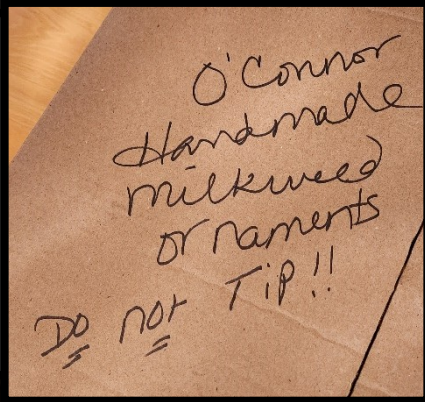 O'Connor
Handmade
milkweed
ornaments
Do not Tip!!